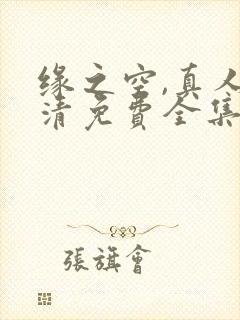 缘之空,真人
清免费全集
張旗會